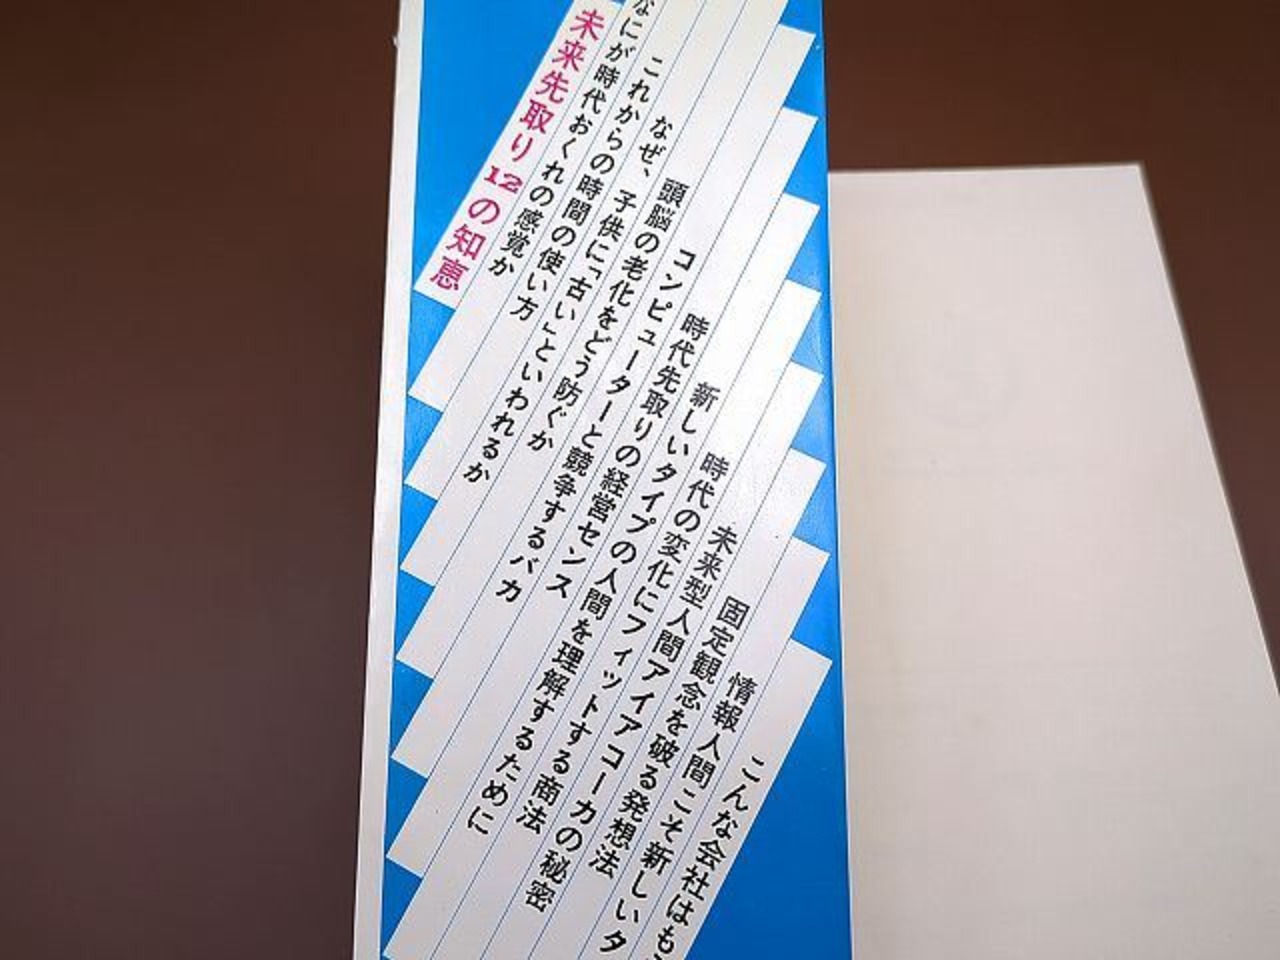 こんな会社はも
情報人間こそ新しいタ
固定観念を破る発想法
未来型人間アイアコーカの秘密
時代の変化にフィットする商法
新しいタイプの人間を理解するために
時代先取りの経営センス
コンピューターと競争するバカ
頭脳の老化をどう防ぐか
なぜ、子供に「古い」といわれるか
これからの時間の使い方
なにが時代おくれの感覚か
未来先取り12の知恵